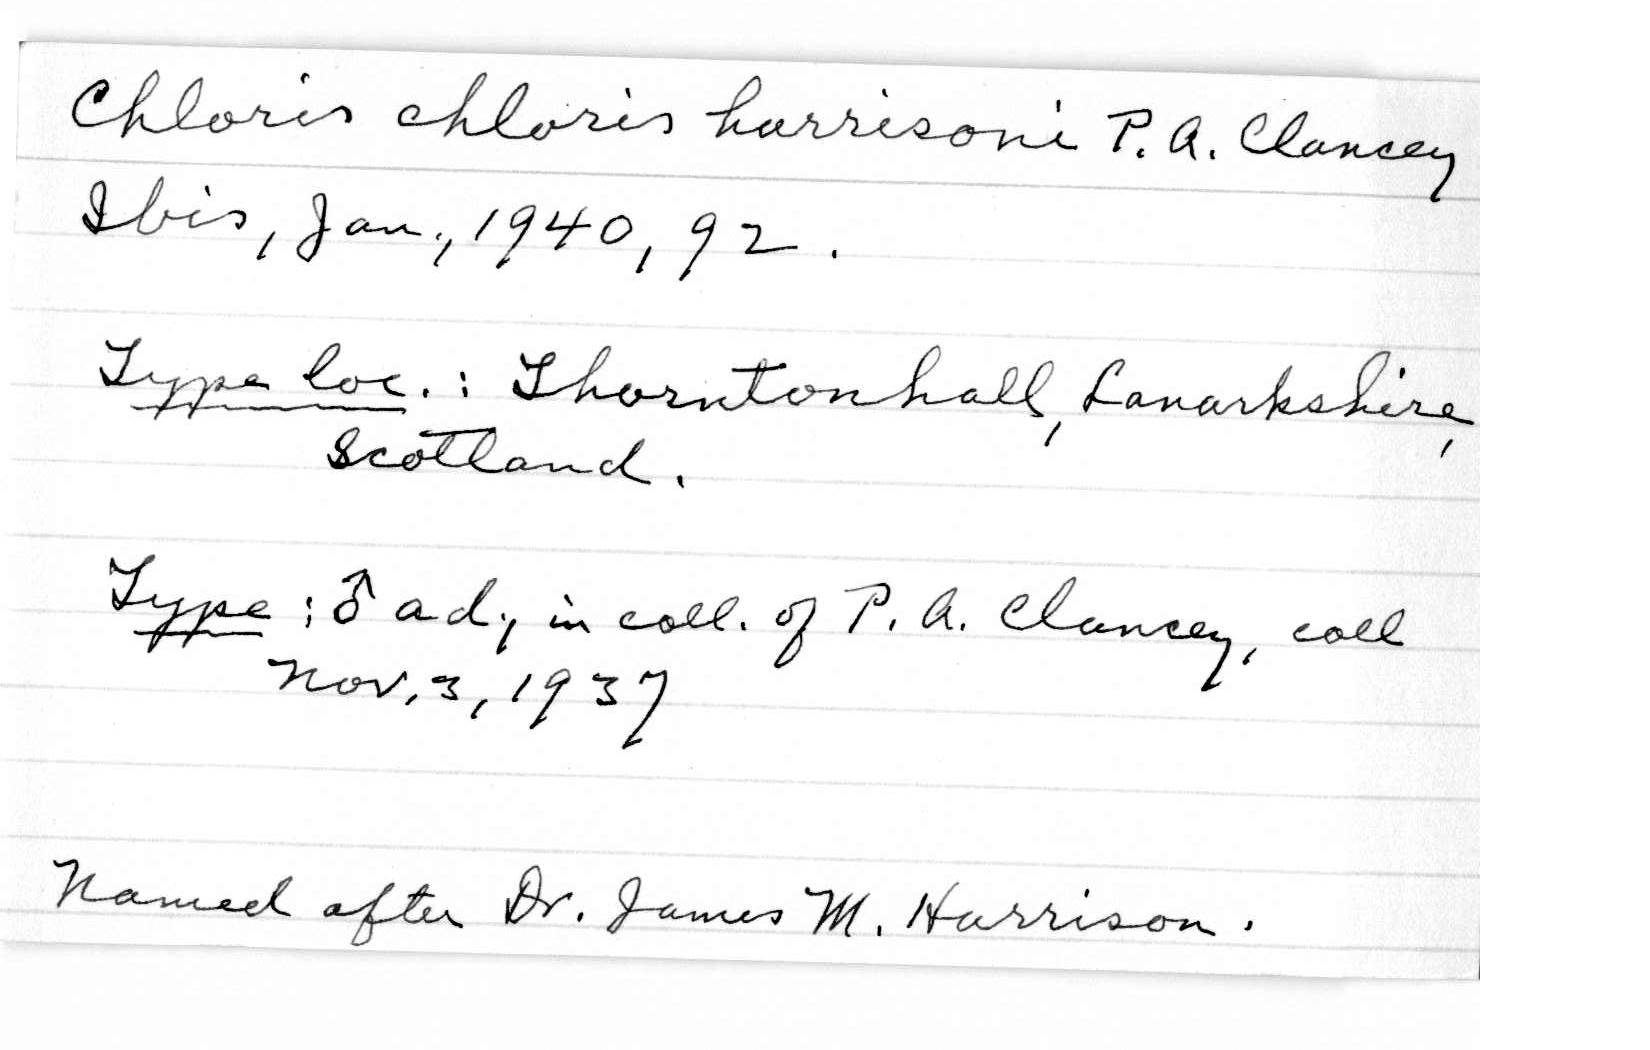 Chloris chloris harrisoni P. A. Clancey
Ibis, Jan., 1940, 92.
Type loc. : Thorntonhall, Lanarkshire,
Scotland.
Type : ♂ ad., in coll. of P. A. Clancey, coll
Nov. 3, 1937
Named after Dr. James M. Harrison.